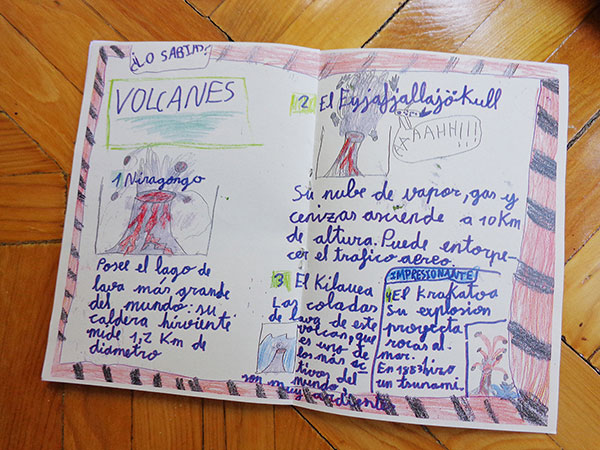 ¿LO SABIAS?
VOLCANES
1 Niragongo
Posee el lago de
lava más grande
del mundo: su
caldera hirviente
mide 1,2 Km de
diametro
2 El Eyjafjallajökull
AAAHH!!!
Su nube de vapor, gas y
cenizas asciende a 10 Km
de altura. Puede entorpe-
cer el trafico aereo.
3 El Kilauea
Las coladas
de lava de este
volcan, que
es uno de
los más ac
tivos del
mundo,
son muy ardiente
IMPRESIONANTE
El Krakatoa
Su explosion
proyecta
rocas al
mar.
En 1883 hizo
un tsunami.